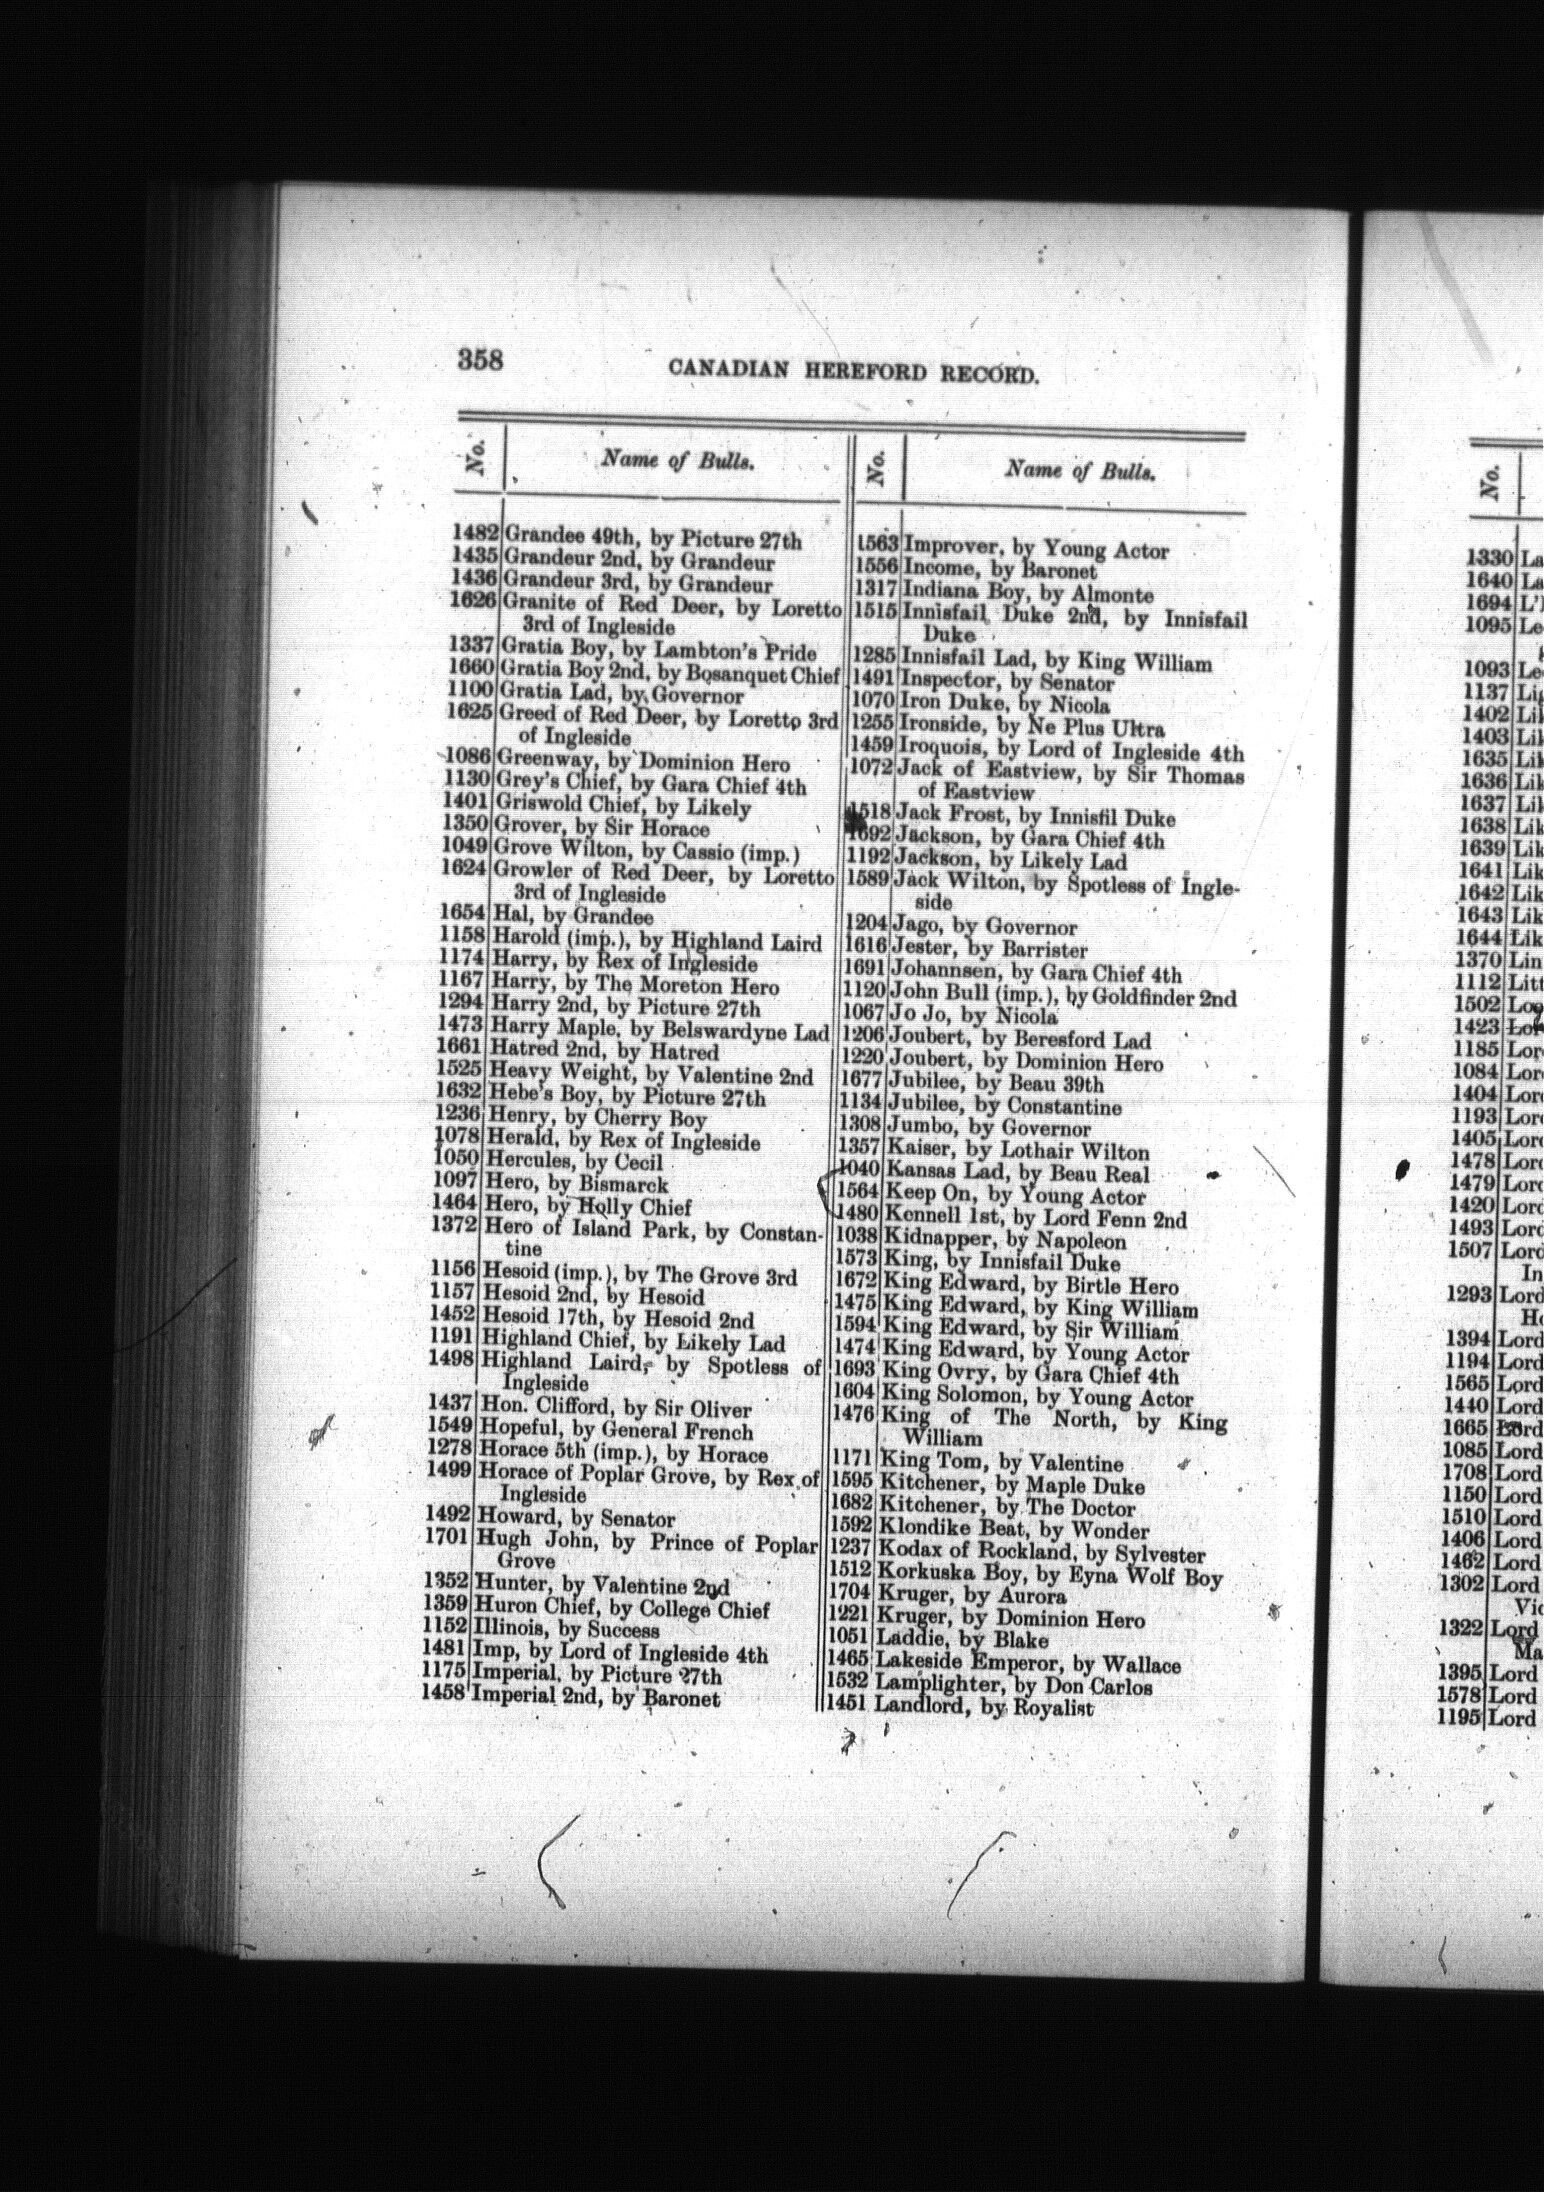 358
CANADIAN HEREFORD RECORD.
No.
Name of Bulls.
1482 Grandee 49th, by Picture 27th
1435 Grandeur 2nd, by Grandeur
1436 Grandeur 3rd, by Grandeur
1626 Granite of Red Deer, by Loretto
3rd of Ingleside
1337 Gratia Boy, by Lambton's Pride
1660 Gratia Boy 2nd, by Bosanquet Chief
1100 Gratia Lad, by Governor
1625 Greed of Red Deer, by Loretto 3rd
of Ingleside
1086 Greenway, by Dominion Hero
1130 Grey's Chief, by Gara Chief 4th
1401 Griswold Chief, by Likely
1350 Grover, by Sir Horace
1049 Grove Wilton, by Cassio (imp.)
1624 Growler of Red Deer, by Loretto
3rd of Ingleside
1654 Hal, by Grandee
1158 Harold (imp.), by Highland Laird
1174 Harry, by Rex of Ingleside
1167 Harry, by The Moreton Hero
1294 Harry 2nd, by Picture 27th
1473 Harry Maple, by Belswardyne Lad
1661 Hatred 2nd, by Hatred
1525 Heavy Weight, by Valentine 2nd
1632 Hebe's Boy, by Picture 27th
1236 Henry, by Cherry Boy
1078 Herald, by Rex of Ingleside
1050 Hercules, by Cecil
1097 Hero, by Bismarck
1464 Hero, by Holly Chief
1372 Hero of Island Park, by Constan-
tine
1156 Hesoid (imp.), by The Grove 3rd
1157 Hesoid 2nd, by Hesoid
1452 Hesoid 17th, by Hesoid 2nd
1191 Highland Chief, by Likely Lad
1498 Highland Laird, by Spotless of
Ingleside
1437 Hon. Clifford, by Sir Oliver
1549 Hopeful, by General French
1278 Horace 5th (imp.), by Horace
1499 Horace of Poplar Grove, by Rex of
Ingleside
1492 Howard, by Senator
1701 Hugh John, by Prince of Poplar
Grove
1352 Hunter, by Valentine 2nd
1359 Huron Chief, by College Chief
1152 Illinois, by Success
1481 Imp, by Lord of Ingleside 4th
1175 Imperial, by Picture 27th
1458 Imperial 2nd, by Baronet
No.
Name of Bulls.
1563 Improver, by Young Actor
1556 Income, by Baronet
1317 Indiana Boy, by Almonte
1515 Innisfail Duke 2nd, by Innisfail
Duke
1285 Innisfail Lad, by King William
1491 Inspector, by Senator
1070 Iron Duke, by Nicola
1255 Ironside, by Ne Plus Ultra
1459 Iroquois, by Lord of Ingleside 4th
1072 Jack of Eastview, by Sir Thomas
of Eastview
1518 Jack Frost, by Innisfil Duke
1692 Jackson, by Gara Chief 4th
1192 Jackson, by Likely Lad
1589 Jack Wilton, by Spotless of Ingle-
side
1204 Jago, by Governor
1616 Jester, by Barrister
1691 Johannsen, by Gara Chief 4th
1120 John Bull (imp.), by Goldfinder 2nd
1067 Jo Jo, by Nicola
1206 Joubert, by Beresford Lad
1220 Joubert, by Dominion Hero
1677 Jubilee, by Beau 39th
1134 Jubilee, by Constantine
1308 Jumbo, by Governor
1357 Kaiser, by Lothair Wilton
1040 Kansas Lad, by Beau Real
1564 Keep On, by Young Actor
1480 Kennell 1st, by Lord Fenn 2nd
1038 Kidnapper, by Napoleon
1573 King, by Innisfail Duke
1672 King Edward, by Birtle Hero
1475 King Edward, by King William
1594 King Edward, by Sir William
1474 King Edward, by Young Actor
1693 King Ovry, by Gara Chief 4th
1604 King Solomon, by Young Actor
1476 King of The North, by King
William
1171 King Tom, by Valentine
1595 Kitchener, by Maple Duke
1682 Kitchener, by The Doctor
1592 Klondike Beat, by Wonder
1237 Kodax of Rockland, by Sylvester
1512 Korkuska Boy, by Eyna Wolf Boy
1704 Kruger, by Aurora
1221 Kruger, by Dominion Hero
1051 Laddie, by Blake
1465 Lakeside Emperor, by Wallace
1532 Lamplighter, by Don Carlos
1451 Landlord, by Royalist
No.
1330 La
1640 La
1694 L'
1095 Le
1093 Le
1137 Lig
1402 Lik
1403 Lik
1635 Lik
1636 Lik
1637 Lik
1638 Lik
1639 Lik
1641 Lik
1642 Lik
1643 Lik
1644 Lik
1370 Lin
1112 Litt
1502
1423 Lor
1185 Lor
1084 Lor
1404 Lor
1193 Lor
1405 Lor
1478 Lor
1479 Lor
1420 Lor
1493 Lord
1507 Lord
In
1293 Lord
Ho
1394 Lord
1194 Lord
1565 Lord
1440 Lord
1665 Lord
1085 Lord
1708 Lord
1150 Lord
1510 Lord
1406 Lord
1462 Lord
1302 Lord
Vic
1322 Lord
Ma
1395 Lord
1578 Lord
1195 Lord